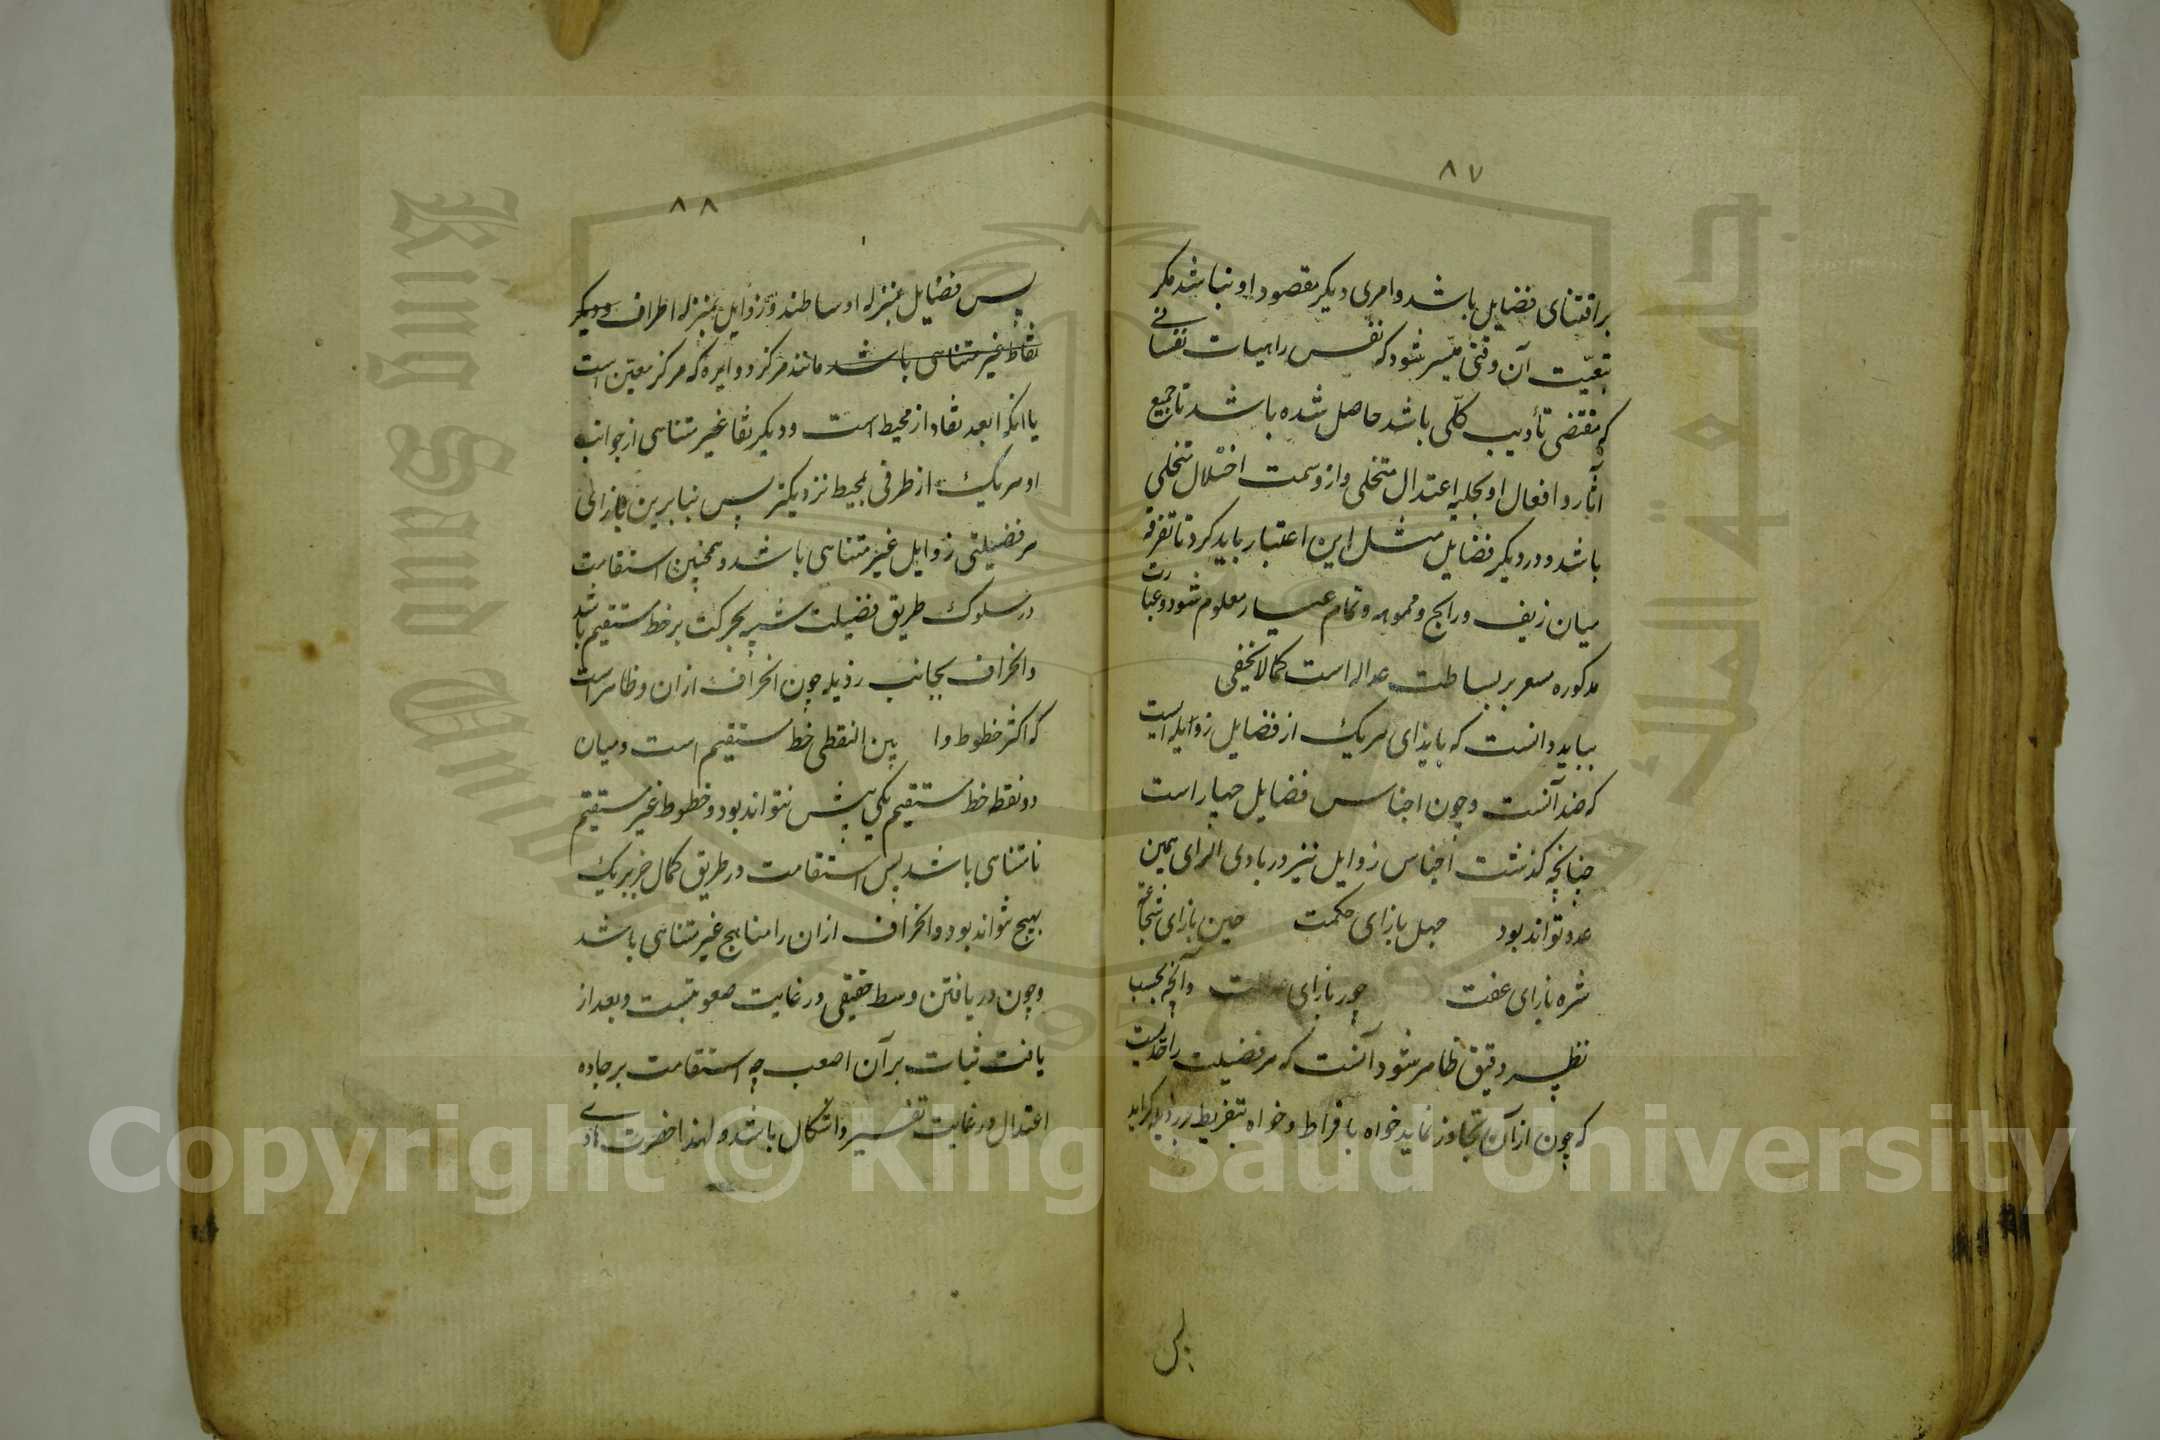 ٨٧
بر اقتنای فضایل باشد و امری دیکر مقصود او نباشد مکر
بتعیّت آن وقتی میّسر شود که نفس را هیات نفسانی
که مقتضی تأدیب کلّی باشد حاصل شده باشد تا جمیع
آثار و افعال او بحلیه اعتدال متحلی و از وسمت اختلال متخلی
باشد و در دیکر فضایل مثل این اعتبار باید کرد تا تفرقه
میان زیف و رایج و مموهه و تمام عیار معلوم شود و عبارت
مذکوره مسعر بر بساطت عداله است کمالا یخفی
بباید دانست که بازای هریک از فضایل رذایله است
که ضد آنست و چون اجناس فضایل چهار است
چنانچه کذشت اجناس رذایل نیز در بادی الرای همین
عدد تواند بود جهل بازای حکمت جبن بازای شجاعة
شره بازای عفت جور بازای وآنچه بحسب
نظر دقیق ظاهر شود آنست که هر فضیلت را حدیست
که چون از آن تجاوز نماید خواه بافراط و خواه بتفریط برذیله کراید
پس
٨٨
پس فضایل بمنزله اوساطند و رذایل بمنزله اطراف و دیکر
نقاط غیر متناهی باشد مانند مرکز و دایره که مرکز معین است
با انکه ابعد نقاد از محیط است و دیکر نقا غیر متناهی از جوانب
او هریک از طرفی بمحیط نزدیکتر پس بنابرین بازای
هر فضیلتی رذایل غیر متناهی باشد و همچنین استقامت
در سلوک طریق فضیلت شبیه بحرکت بر خط مستقیم باشد
و انحراف بجانب رذیله چون انحراف ازان و ظاهر است
که اکثر خطوط وا بین النقطی خط مستقیم است و میان
دو نقطه خط مستقیم یکی بیش نتواند بود و خطوط غیر مستقیم
نامتناهی باشد پس استقامت در طریق کمال جز بریک
بهیج نتواند بود و انحراف ازان را مناهج غیر متناهی باشد
و چون دریافتن وسط حقیقی در غایت صعوبتست و بعد از
یافت ثبات بر آن اصعب چه استقامت بر جاده
اعتدال در غایت تفسیر و اشکال باشد و لهذا حضرت
King Saud University
جامعة الملك سعود
1957
Copyright © King Saud University